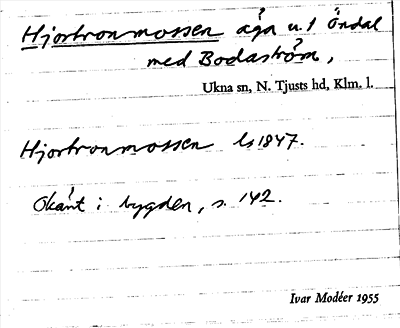 Hjortronmossen äga u. 1 Öndal
med Bodaström,
Ukna sn, N. Tjusts hd, Klm. l.
Hjortronmossen ls 1847.
Okänt i bygden, s. 142.
Ivar Modéer 1955